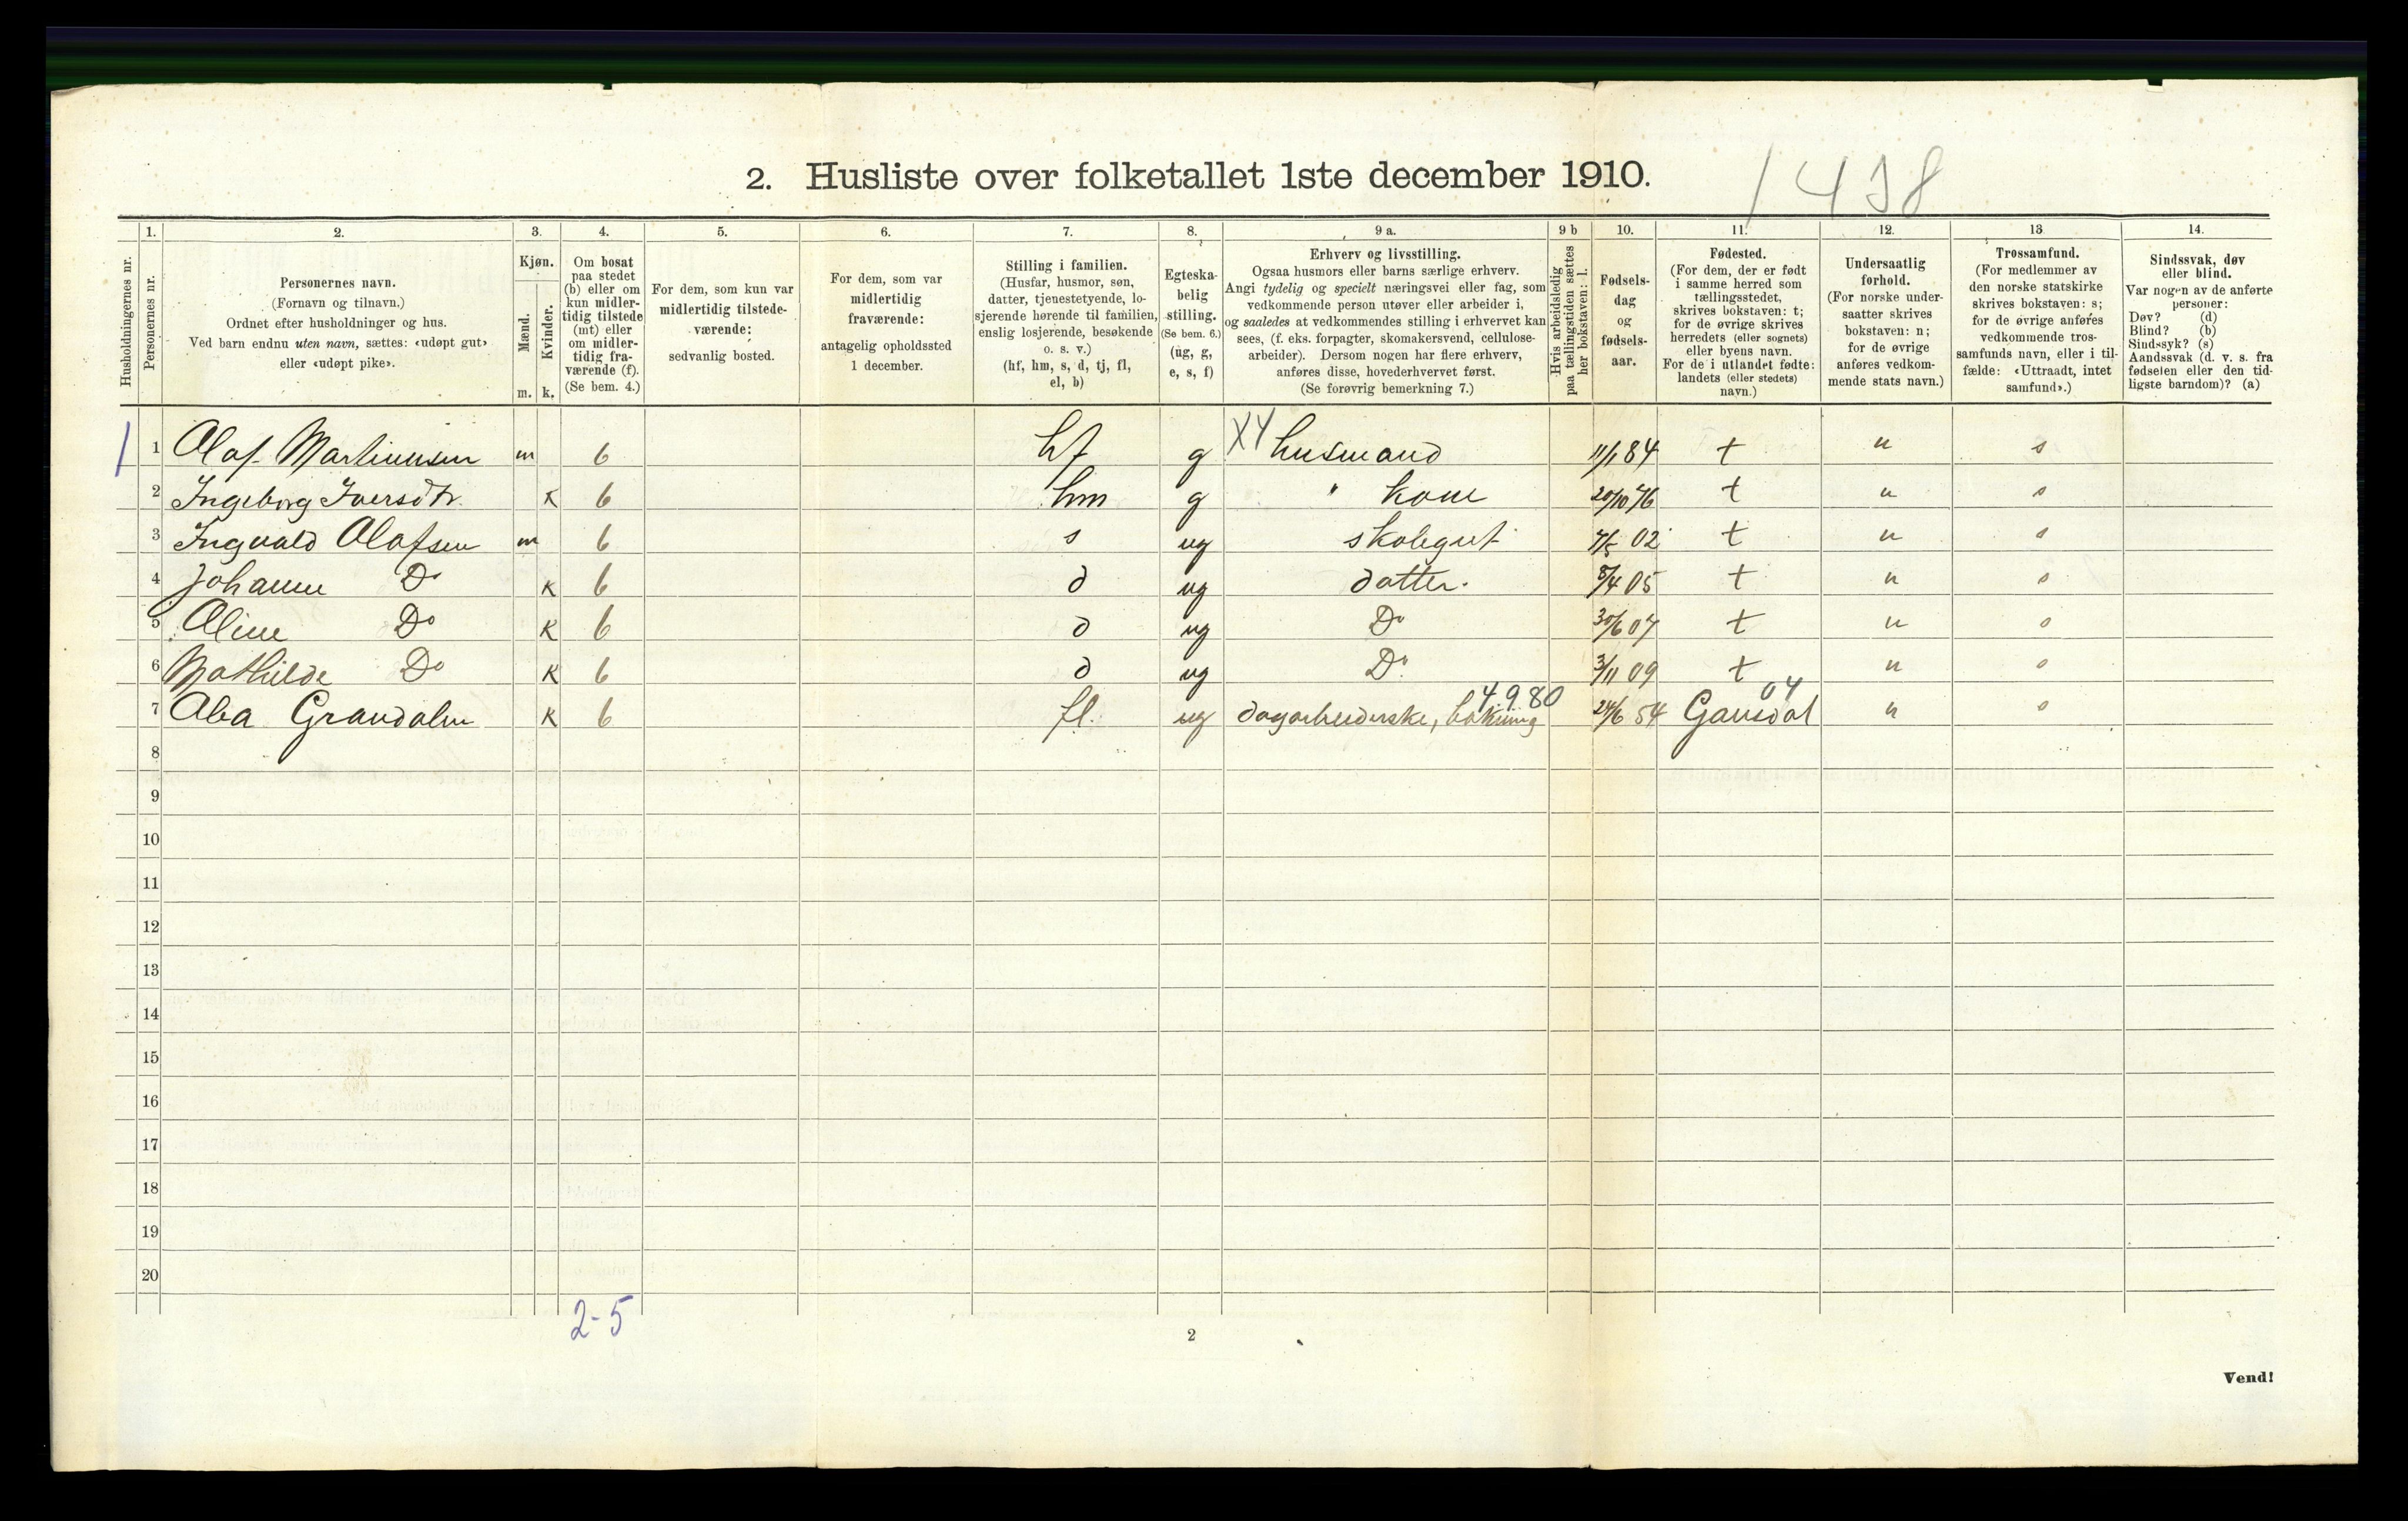 2. Husliste over folketallet 1ste december 1910.
1498
Husholdningernes nr.
1.
Personernes nr.
2.
Personernes navn.
(Fornavn og tilnavn.)
Ordnet efter husholdninger og hus.
Ved barn endnu uten navn, sættes: «udøpt gut»
eller «udøpt pike».
3.
Kjøn.
Mænd.
Kvinder.
m. k.
4.
Om bosat
paa stedet
(b) eller om
kun midler-
tidig tilstede
(mt) eller
om midler-
tidig fra-
værende (f).
(Se bem. 4.)
5.
For dem, som kun var
midlertidig tilstede-
værende:
sedvanlig bosted.
6.
For dem, som var
midlertidig
fraværende:
antagelig opholdssted
1 december.
7.
Stilling i familien.
(Husfar, husmor, søn,
datter, tjenestetyende, lo-
sjerende hørende til familien,
enslig losjerende, besøkende
o. s. v.)
(hf, hm, s, d, tj, fl,
el, b)
8.
Egteska-
belig
stilling.
(Se bem. 6.)
(ug, g,
e, s, f)
9 a.
Erhverv og livsstilling.
Ogsaa husmors eller barns særlige erhverv.
Angi tydelig og specielt næringsvei eller fag, som
vedkommende person utøver eller arbeider i,
og saaledes at vedkommendes stilling i erhvervet kan
sees, (f. eks. forpagter, skomakersvend, cellulose-
arbeider). Dersom nogen har flere erhverv,
anføres disse, hovederhvervet først.
(Se forøvrig bemerkning 7.)
9 b
Hvis arbeidsledig
paa tællingstiden sættes
her bokstaven: l.
10.
Fødsels-
dag
og
fødsels-
aar.
11.
Fødested.
(For dem, der er født
i samme herred som
tællingsstedet,
skrives bokstaven: t;
for de øvrige skrives
herredets (eller sognets)
eller byens navn.
For de i utlandet fødte:
landets (eller stedets)
navn.)
12.
Undersaatlig
forhold.
(For norske under-
saatter skrives
bokstaven: n;
for de øvrige
anføres vedkom-
mende stats navn.)
13
Trossamfund.
(For medlemmer av
den norske statskirke
skrives bokstaven: s;
for de øvrige anføres
vedkommende tros-
samfunds navn, eller i til-
fælde: «Uttraadt, intet
samfund».)
14.
Sindssvak, døv
eller blind.
Var nogen av de anførte
personer:
Døv? (d)
Blind? (b)
Sindssyk? (s)
Aandssvak (d. v. s. fra
fødselen eller den tid-
ligste barndom)? (a)
1 1 Olaf Martinusen m b hf g X4 husmand 11/1 84 t n s
2 Ingeborg Iversdtr. k b hm g " kone 20/10 76 t n s
3 Ingvald Olafsen m b s ug skolegut 7/5 02 t n s
4 Johanne Do k b d ug datter. 8/4 05 t n s
5 Oline Do k b d ug Do 30/6 07 t n s
6 Mathilde Do k b d ug Do 3/11 09 t n s
4980 04
7 k b fl. ug dagarbeiderske, 24/6 54 Gausdal n s
8
9
10
11
12
13
14
15
16
17
18
19
20
2-5
2
Vend!